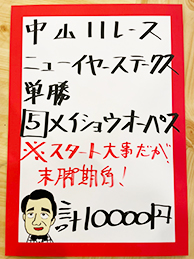 中山11レース
ニューイヤーステークス
単勝
5 メイショウオーパス
※スタート大事だが
末脚期角!
計10000円